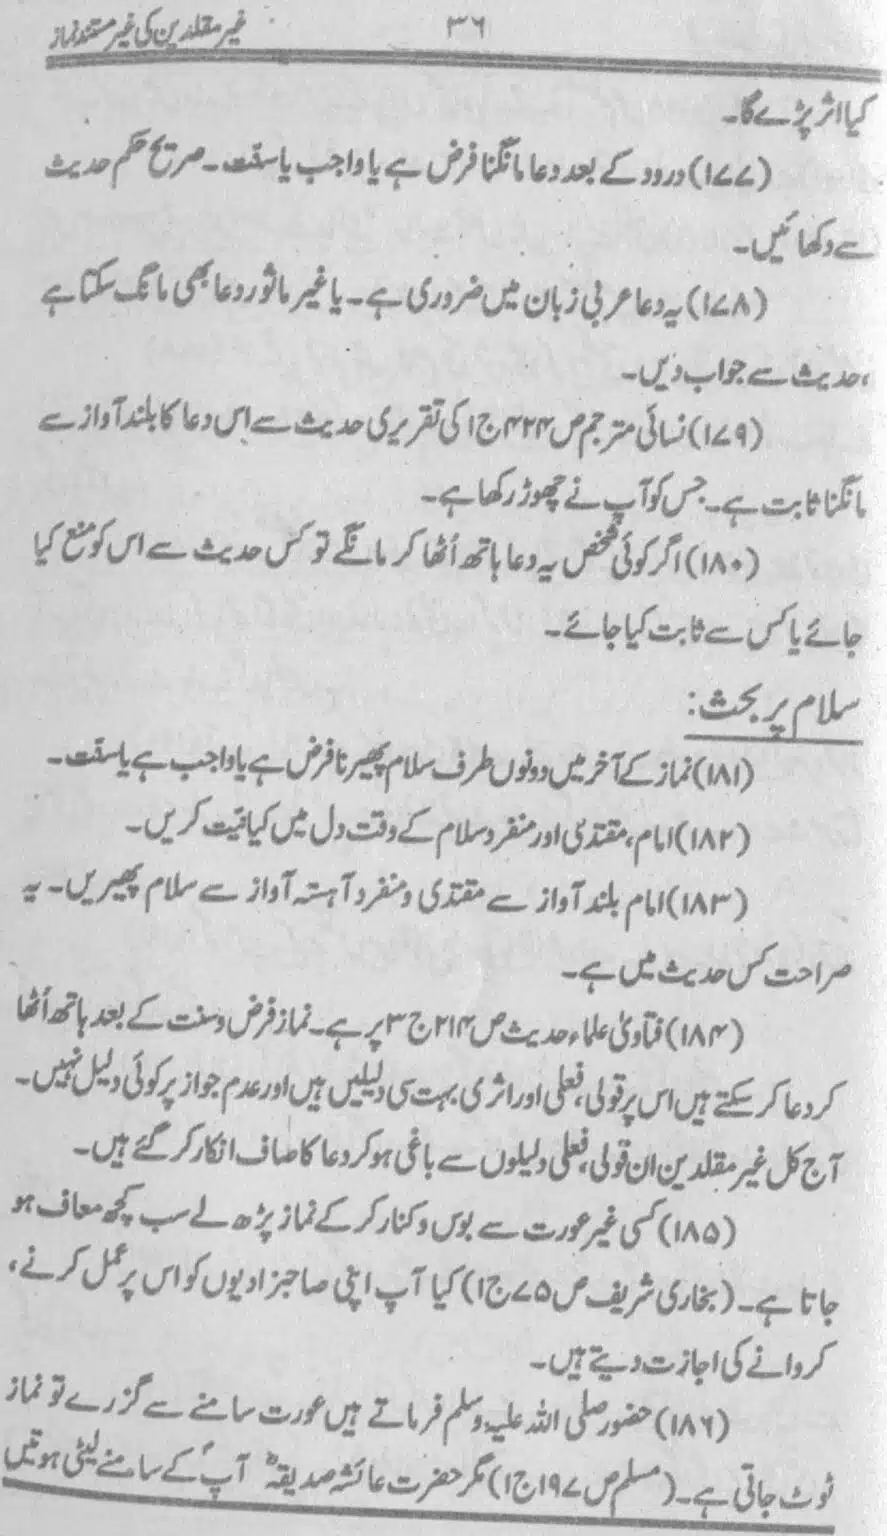 غیر مقلدین کی غیر مستند نماز
۳۶
کیا اثر پڑے گا۔
(۱۷۷) درود کے بعد دعا مانگنا فرض ہے یا واجب یا سنّت۔ صریح حکم حدیث
سے دکھائیں۔
(۱۷۸) یہ دعا عربی زبان میں ضروری ہے۔ یا غیر ماثور دعا بھی مانگ سکتا ہے
،حدیث سے جواب دیں۔
(۱۷۹) نسائی مترجم ص۴۲۴ ج۱ کی تقریری حدیث سے اس دعا کا بلند آواز سے
مانگنا ثابت ہے۔ جس کو آپ نے چھوڑ رکھا ہے۔
(۱۸۰) اگر کوئی شخص یہ دعا ہاتھ اُٹھا کر مانگے تو کس حدیث سے اس کو منع کیا
جائے یا کس سے ثابت کیا جائے۔
سلام پر بحث:
(۱۸۱) نماز کے آخر میں دونوں طرف سلام پھیرنا فرض ہے یا واجب ہے یا سنّت۔
(۱۸۲) امام، مقتدی اور منفرد سلام کے وقت دل میں کیا نیّت کریں۔
(۱۸۳) امام بلند آواز سے مقتدی و منفرد آہستہ آواز سے سلام پھیریں۔ یہ
صراحت کس حدیث میں ہے۔
(۱۸۴) فتاویٰ علماء حدیث ص۲۱۴ ج۳ پر ہے۔ نماز فرض و سنت کے بعد ہاتھ اُٹھا
کر دعا کر سکتے ہیں اس پر قولی، فعلی اور اثری بہت سی دلیلیں ہیں اور عدم جواز پر کوئی دلیل نہیں۔
آج کل غیر مقلدین ان قولی، فعلی دلیلوں سے باغی ہو کر دعا کا صاف انکار کر گئے ہیں۔
(۱۸۵) کسی غیر عورت سے بوس و کنار کر کے نماز پڑھ لے سب کچھ معاف ہو
جاتا ہے۔ (بخاری شریف ص۷۵ ج۱) کیا آپ اپنی صاحبزادیوں کو اس پر عمل کرنے،
کروانے کی اجازت دیتے ہیں۔
(۱۸۶) حضور صلی اللہ علیہ وسلم فرماتے ہیں عورت سامنے سے گزرے تو نماز
ٹوٹ جاتی ہے۔ (مسلم ص۱۹۷ ج۱) مگر حضرت عائشہ صدیقہؓ آپؐ کے سامنے لیٹی ہوتیں